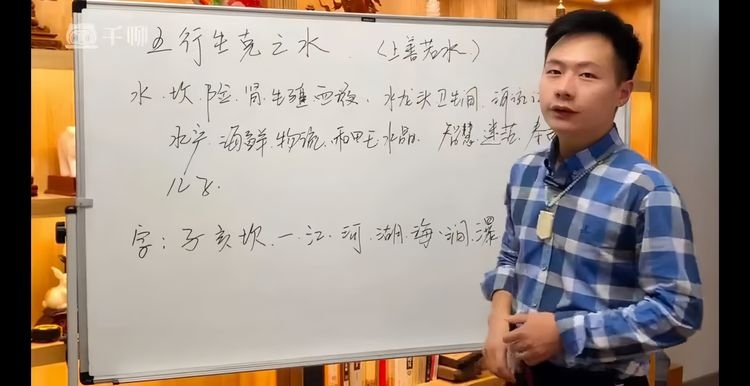 千聊
五行生克之水 (上善若水)
水.坎.险.肾.生殖.血液.水龙头.卫生间.酒
水产.海鲜.物流.和田玉.水晶.智慧.迷茫
字:子.亥.坎.一.江.河.湖.海.涧.瀑